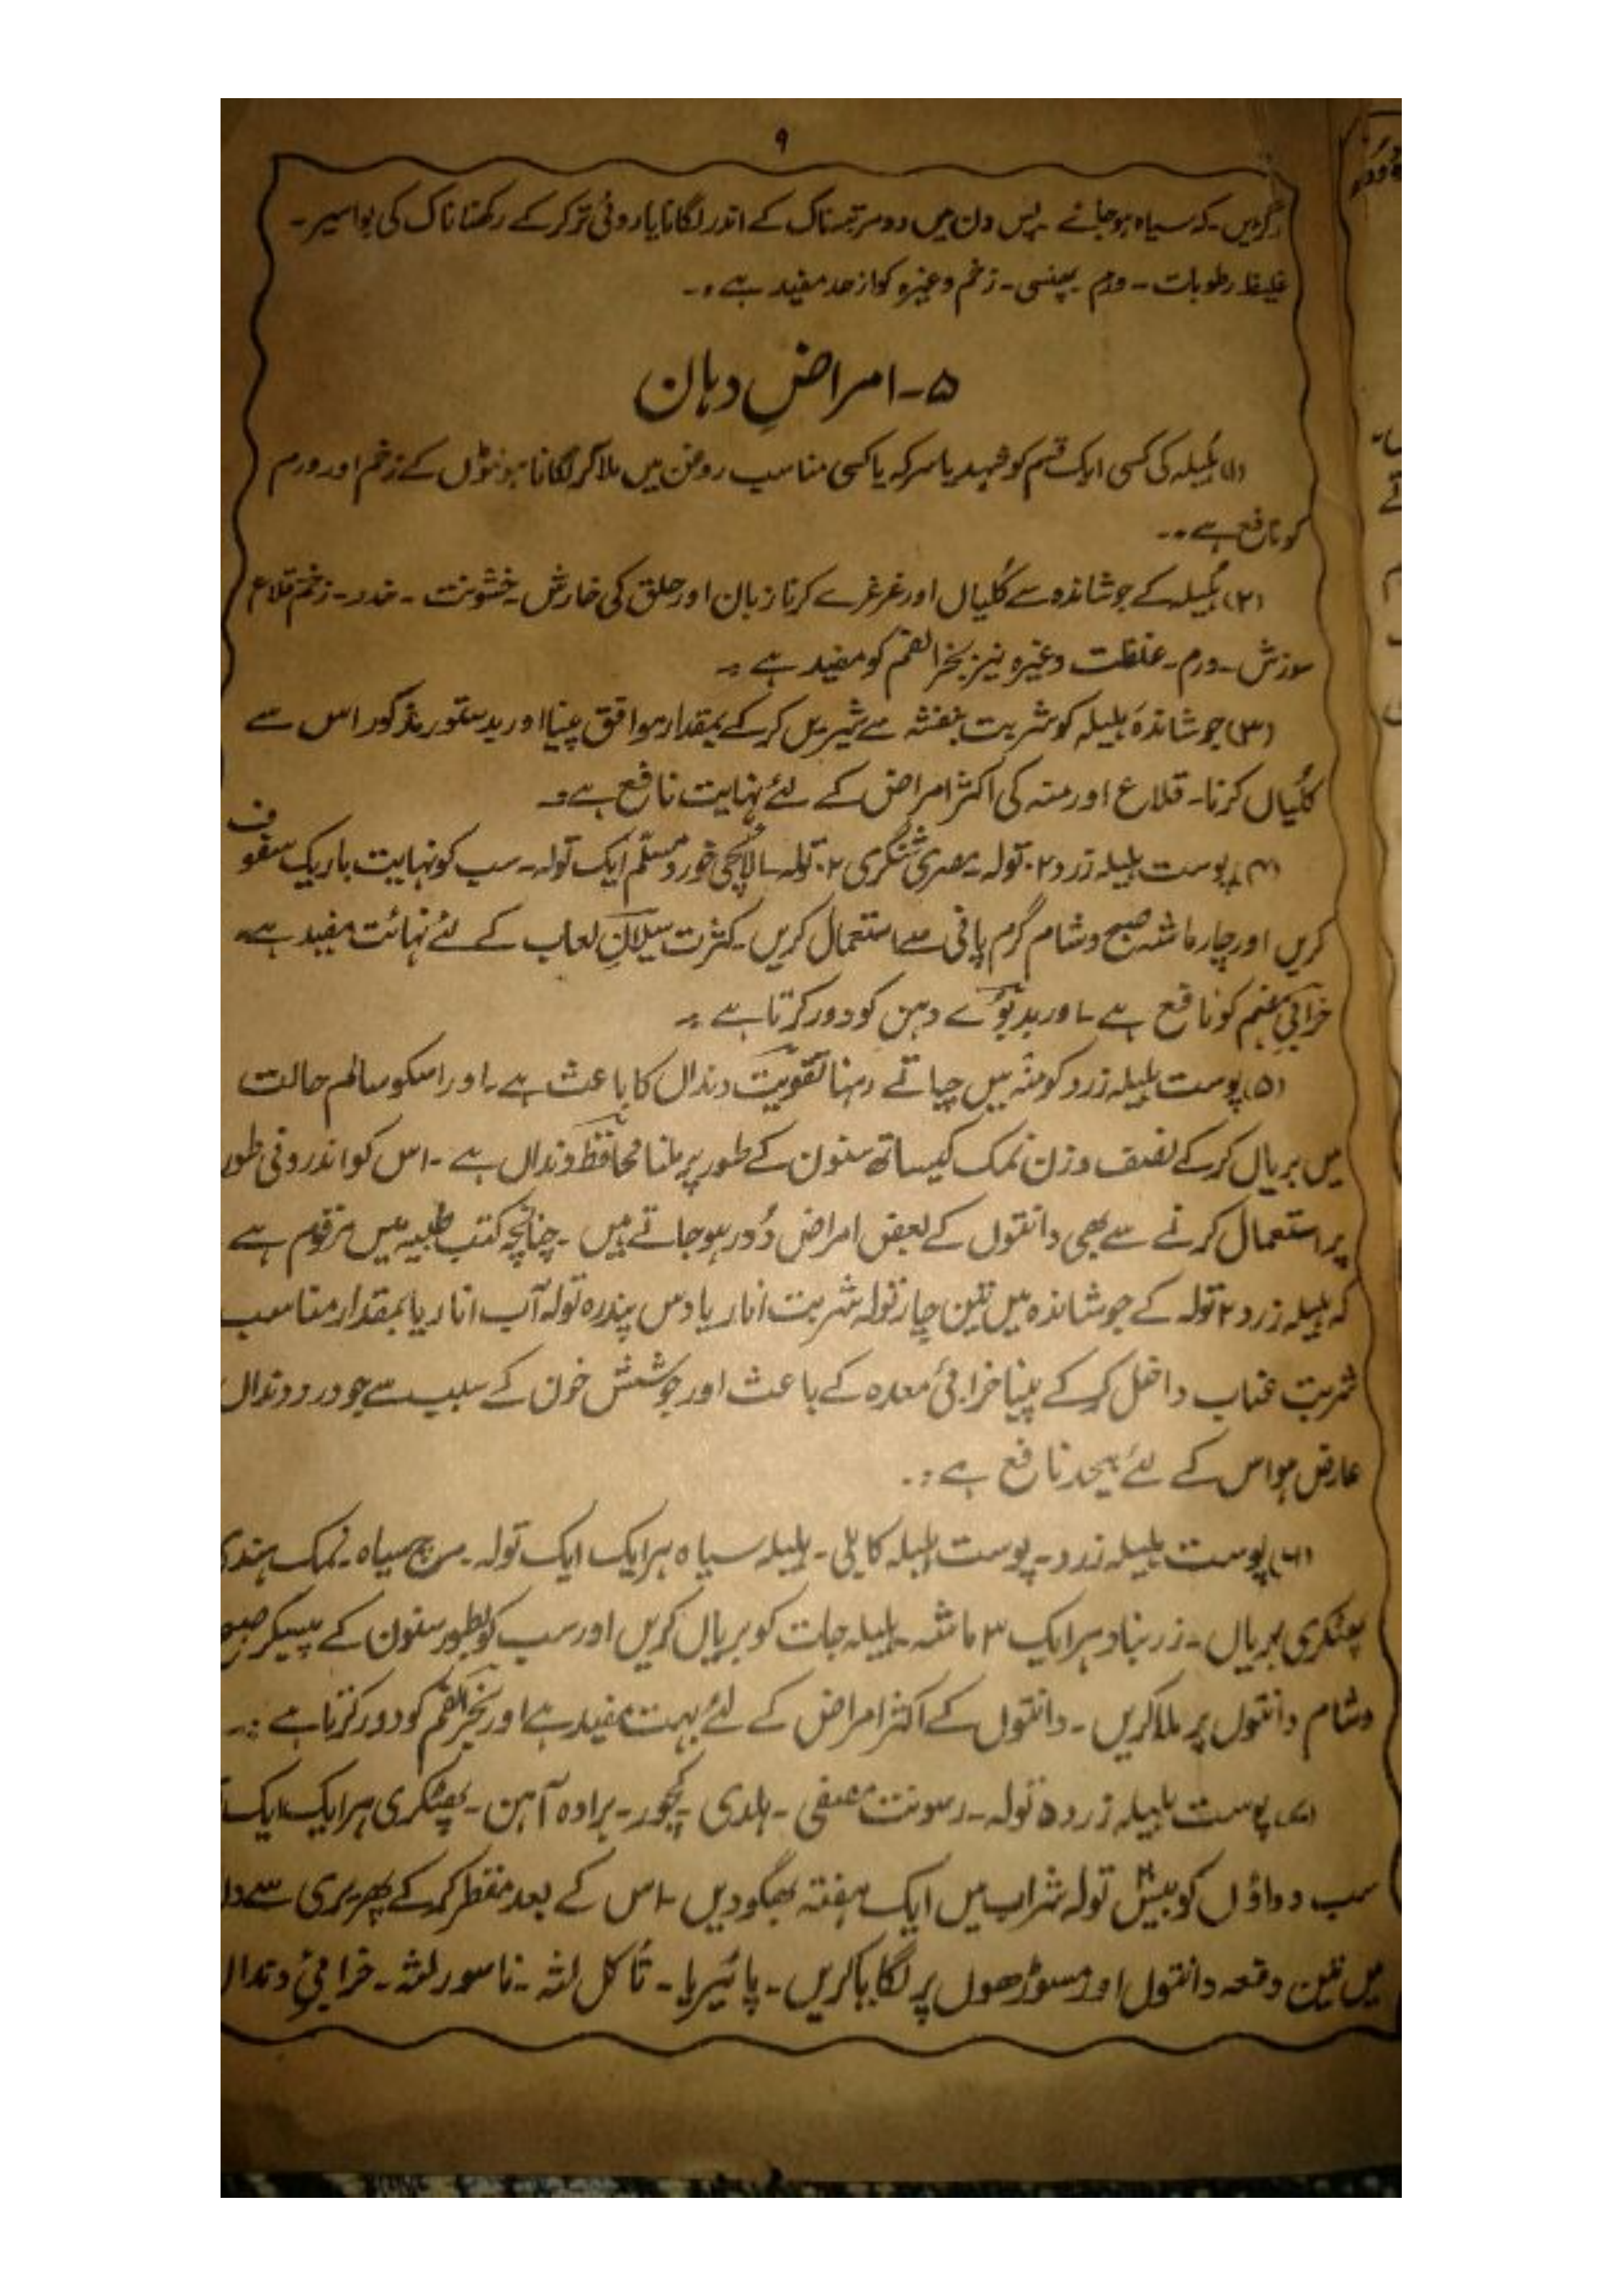 ۹
رگڑیں۔ کہ سیاہ ہو جائے۔ پس دن میں دو مرتبہ ناک کے اندر لگانا یا روئی تر کر کے رکھنا ناک کی بواسیر۔
غلیظ رطوبات۔ ورم۔ پھنسی۔ زخم وغیرہ کو از حد مفید ہے۔
۵۔ امراضِ دہان
(۱) ہلیلہ کی کسی ایک قسم کو شہد یا سرکہ یا کسی مناسب روغن میں ملا کر لگانا ہونٹوں کے زخم اور ورم
کو نافع ہے۔
(۲) ہلیلہ کے جوشاندہ سے کُلیاں اور غرغرے کرنا زبان اور حلق کی خارش۔ خشونت۔ خدر۔ زخم قلاع
سوزش۔ ورم۔ غلظت وغیرہ نیز بخر الفم کو مفید ہے۔
(۳) جوشاندہَ ہلیلہ کو شربت بنفشہ سے شیریں کر کے بمقدار موافق پینا اور بدستور مذکور اس سے
کُلیاں کرنا۔ قلاع اور منہ کی اکثر امراض کے لئے نہایت نافع ہے۔
(۴) پوست ہلیلہ زرد ۲ تولہ۔ مصری شنگری ۲ تولہ۔ الائچی خورد مسلّم ایک تولہ۔ سب کو نہایت باریک سفوف
کریں اور چار ماشہ صبح و شام گرم پانی سے استعمال کریں۔ کثرت سیلانِ لعاب کے لئے نہائت مفید ہے۔
خرابیِ ہضم کو نافع ہے۔ اور بدبوئے دہن کو دور کرتا ہے۔
(۵) پوست ہلیلہ زرد کو منہ میں چباتے رہنا تقویت دنداں کا باعث ہے۔ اور اسکو سالم حالت
میں بریاں کر کے نصف وزن نمک کیساتھ سنون کے طور پر ملنا محافظ دنداں ہے۔ اس کو اندرونی طور
پر استعمال کرنے سے بھی دانتوں کے بعض امراض دُور ہو جاتے ہیں۔ چنانچہ کتب طبیہ میں مرقوم ہے
کہ ہلیلہ زرد ۲ تولہ کے جوشاندہ میں تین چار تولہ شربت انار یا دس پندرہ تولہ آب انار یا بمقدار مناسب
شربت عناب داخل کر کے پینا خرابیٔ معدہ کے باعث اور جوشش خون کے سبب سے جو درد دنداں
عارض ہو اس کے لئے بیحد نافع ہے۔
(۶) پوست ہلیلہ زرد۔ پوست ہلیلہ کابلی۔ ہلیلہ سیاہ ہر ایک ایک تولہ۔ مرچ سیاہ۔ نمک ہندی
پھٹکری بریاں۔ زرنباد ہر ایک ۳ ماشہ۔ ہلیلہ جات کو بریاں کریں اور سب کو بطور سنون کے پیسکر صبح
و شام دانتوں پر ملا کریں۔ دانتوں کے اکثر امراض کے لئے بہت مفید ہے اور بخر الفم کو دور کرتا ہے۔
(۷) پوست ہلیلہ زرد ۵ تولہ۔ رسونت مصفی۔ ہلدی۔ کچور۔ برادہ آہن۔ پھٹکری ہر ایک ایک
سب دواؤں کو بیس تولہ شراب میں ایک ہفتہ بھگو دیں۔ اس کے بعد مقطر کر کے پھریری سے
میں تین دفعہ دانتوں اور مسوڑھوں پر لگایا کریں۔ پائیریا۔ تأکل لثہ۔ ناسور لثہ۔ خرابیٔ دنداں